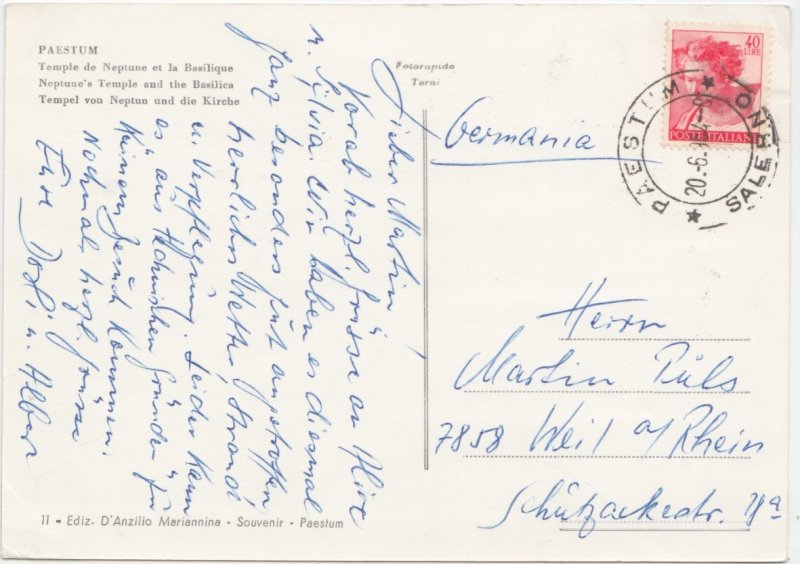 PAESTUM
Temple de Neptune et la Basilique
Neptune's Temple and the Basilica
Tempel von Neptun und die Kirche
Fotorapida
Terni
Lieber Martin,
Vorab herzl. Grüsse an
u. Silvia. Wir haben es diesmal
ganz besonders gut angetroffen
herrliches Wetter, Strand
u. Verpflegung. Leider kann
es aus technischen Gründen zu
keinem Besuch kommen.
Nochmals herzl. Grüsse
Eure Dorli u. Albert
Germania
40
LIRE
POSTE ITALIANE
PAESTUM
SALERNO
20.-6.
Herrn
Martin Püls
7858 Weil a/Rhein
Schützackerstr.
11 - Ediz. D'Anzilio Mariannina - Souvenir - Paestum